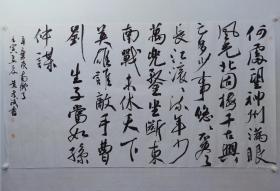 何處望神州滿眼
風光北固樓千古興
亡多少事悠悠不盡
長江滾滾流年少
萬兜鍪坐斷東
南戰未休天下
英雄誰敵手曹
劉生子當如孫
仲謀
辛棄疾南鄉子